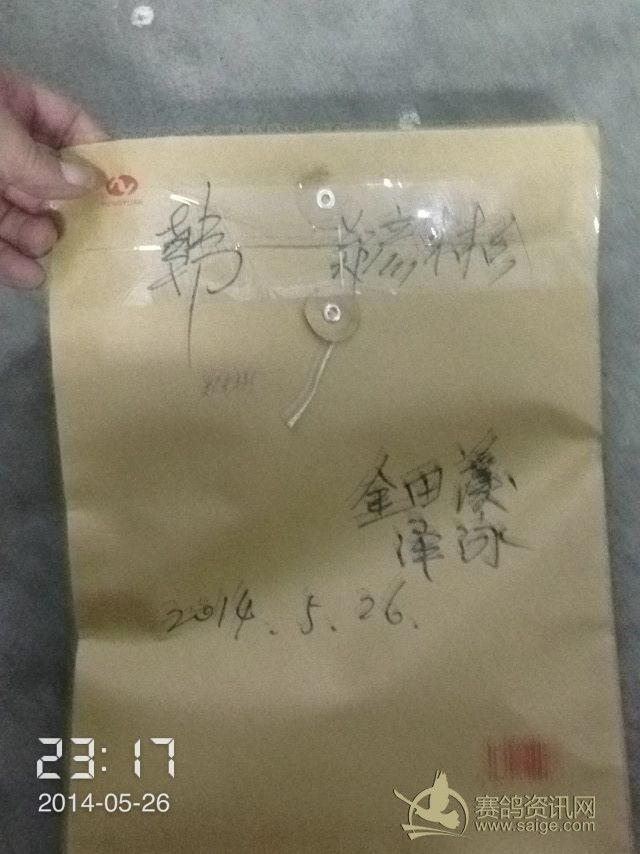 韩
金田溪
泽泳
2014.5.26.
23:17
2014-05-26
赛鸽资讯网
www.saige.com